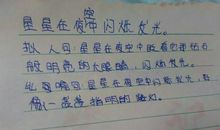 星星在夜空中闪烁发光。
拟人句：星星在夜空中眨着它那
般明亮的大眼睛，闪烁发光。
比喻句：星星在夜空中闪烁发光，好
像一盏盏指明的路灯。